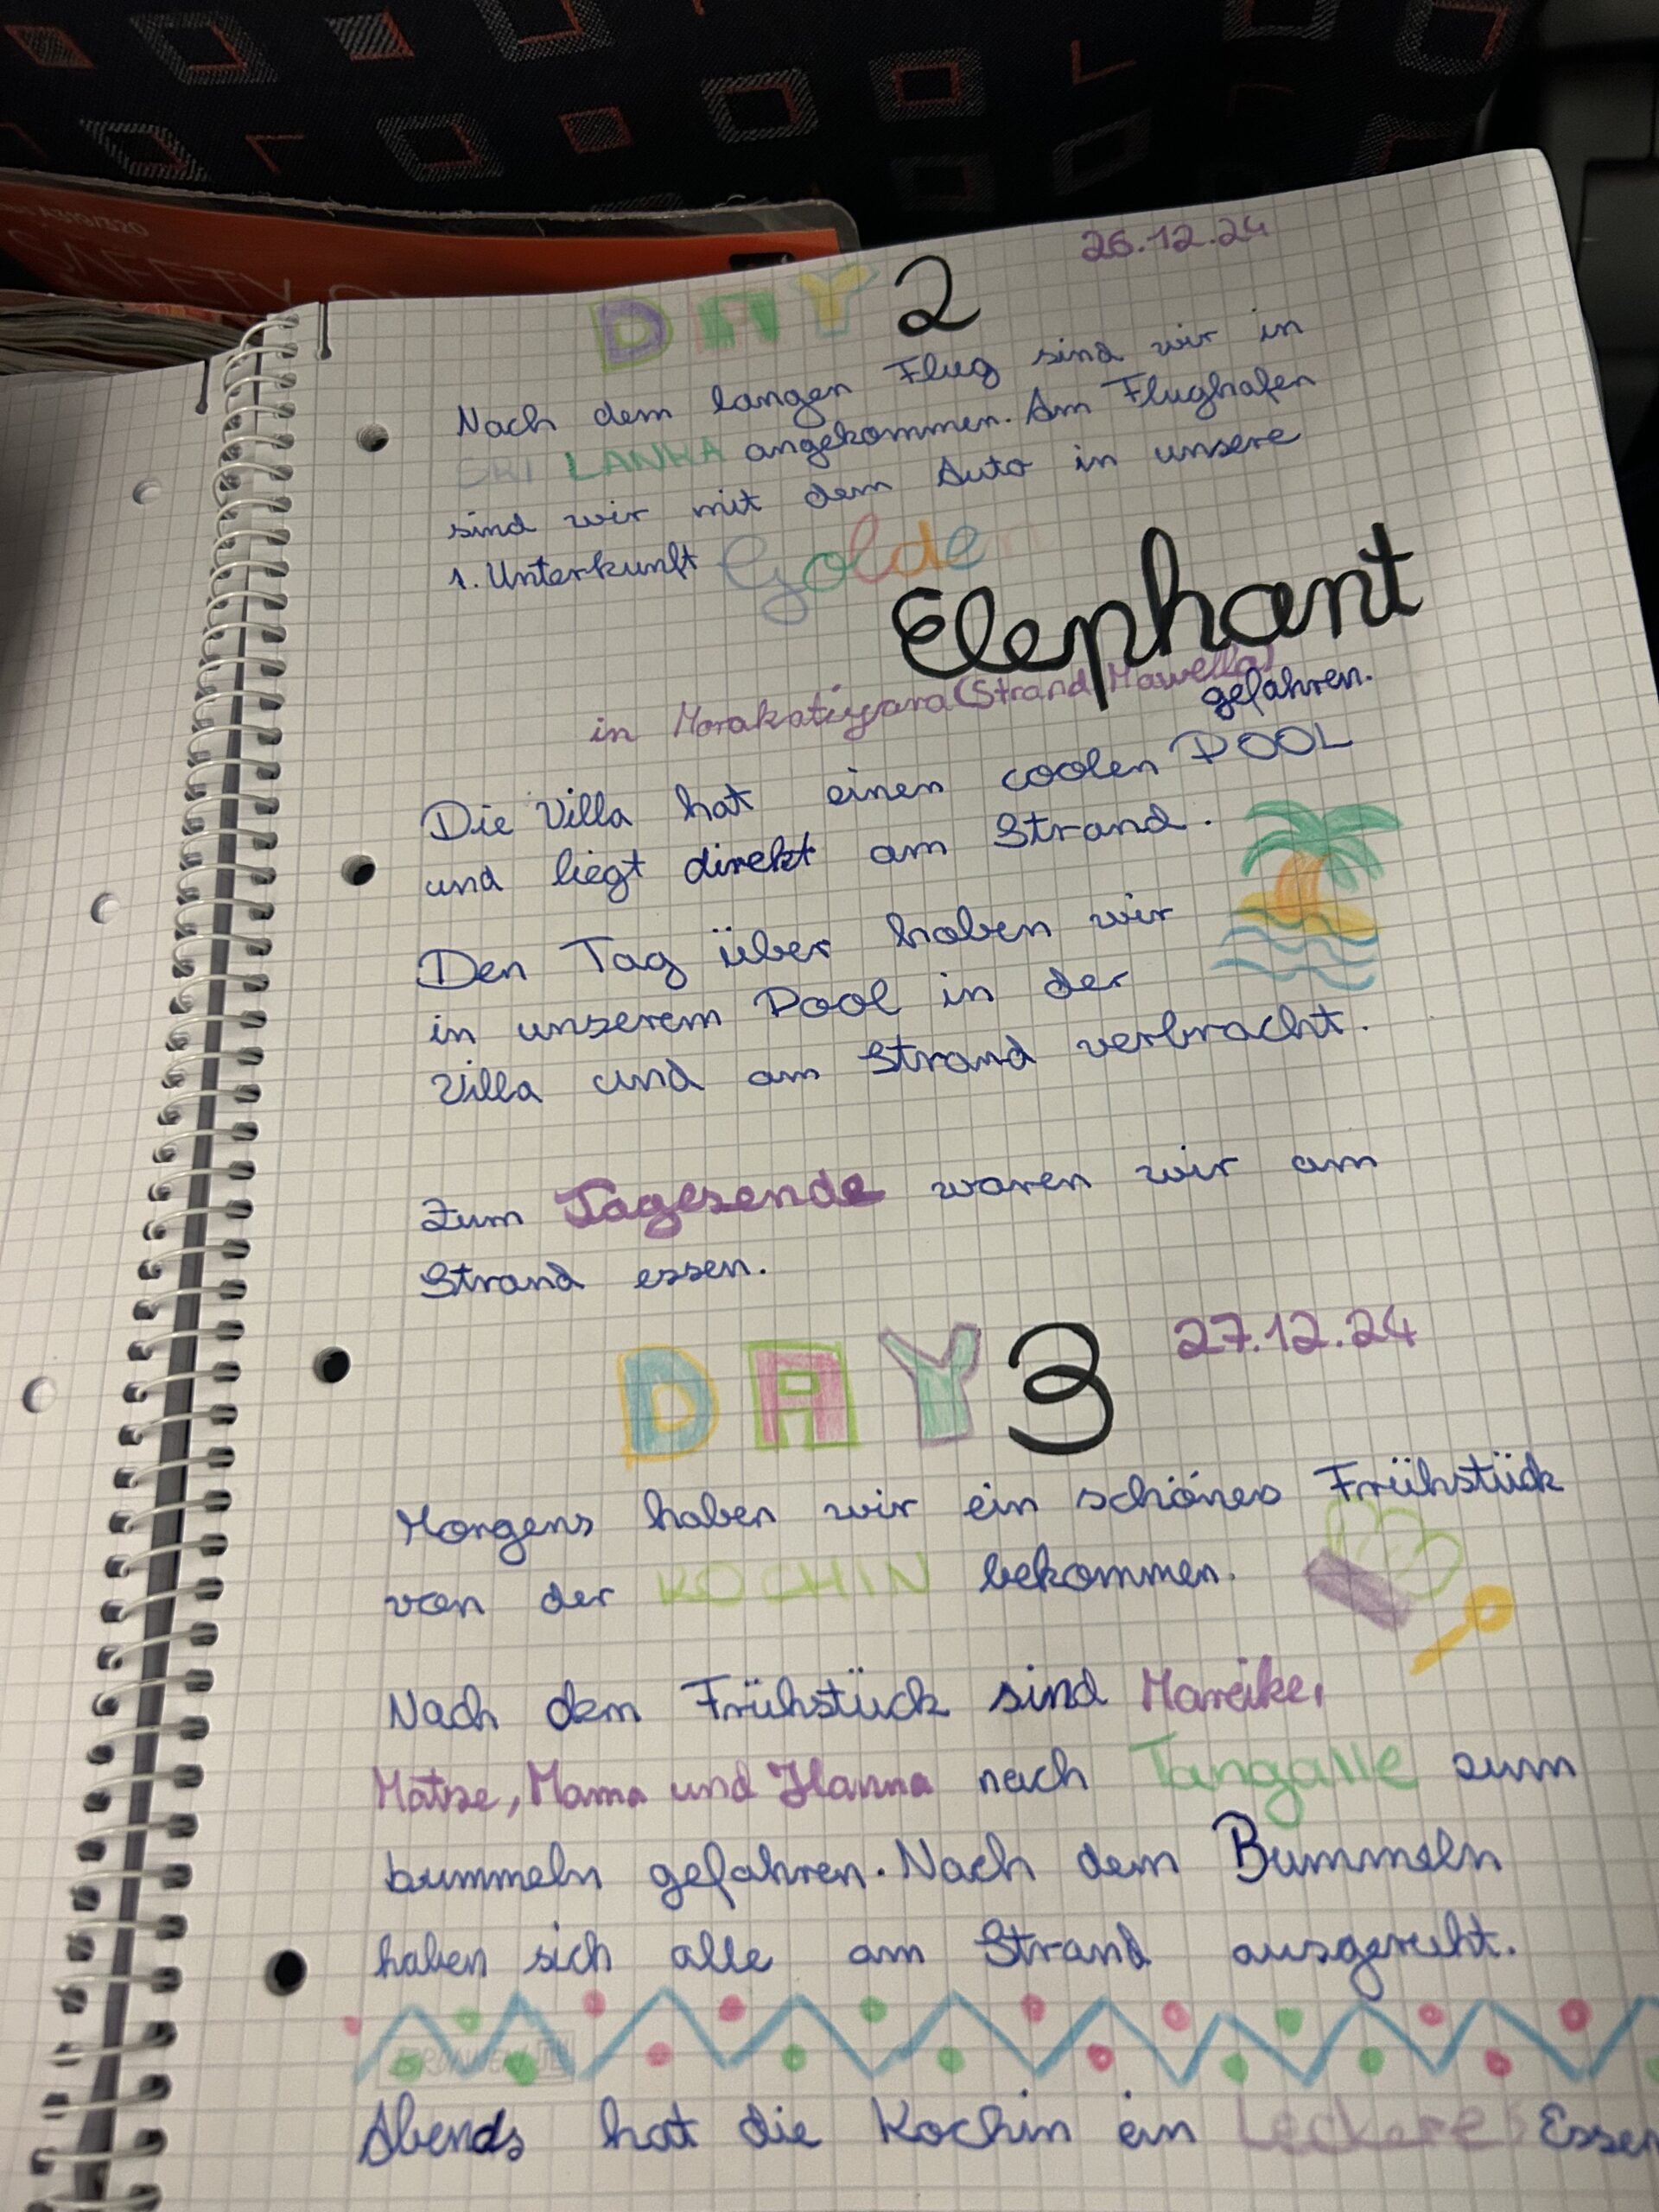 A319/320
SAFETY ON
26.12.24
DAY 2
Nach dem langen Flug sind wir in
SRI LANKA angekommen. Am Flughafen
sind wir mit dem Auto in unsere
1. Unterkunft Golden
Elephant
in Morakatiyara (Strand Mawella)
gefahren.
Die Villa hat einen coolen POOL
und liegt direkt am Strand.
Den Tag über haben wir
in unserem Pool in der
Villa und am Strand verbracht.
Zum Tagesende waren wir am
Strand essen.
DAY 3 27.12.24
Morgens haben wir ein schönes Frühstück
von der KOCHIN bekommen.
Nach dem Frühstück sind Mareike,
Matze, Mama und Hanna nach Tangalle zum
bummeln gefahren. Nach dem Bummeln
haben sich alle am Strand ausgeruht.
BRUNNEN
Abends hat die Kochin ein Leckeres Essen